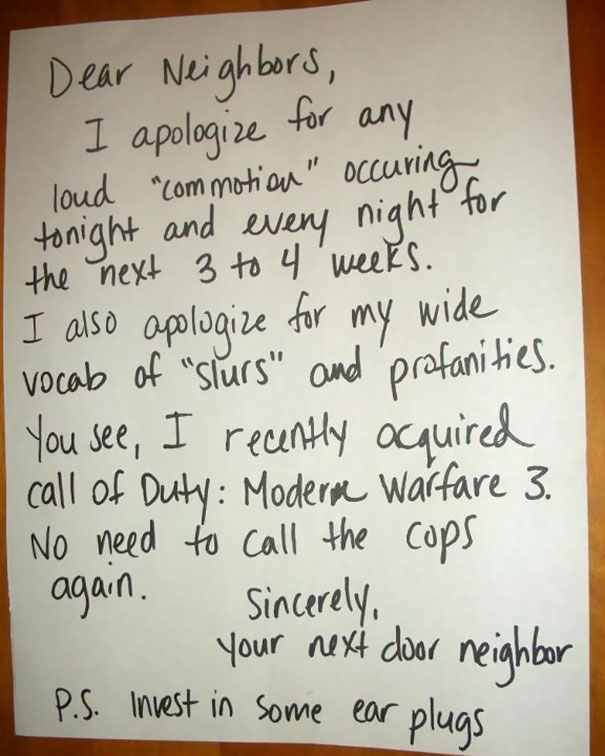 Dear Neighbors,
I apologize for any
loud "commotion" occuring
tonight and every night for
the next 3 to 4 weeks.
I also apologize for my wide
vocab of "slurs" and profanities.
You see, I recently acquired
call of Duty: Modern Warfare 3.
No need to call the cops
again.
Sincerely,
your next door neighbor
P.S. Invest in some ear plugs